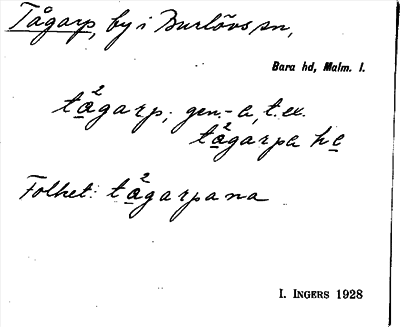 Tågarp, by i Burlövs sn,
Bara hd, Malm. l.
tå²garp; gen.-a, t.ex.
tå²garpa ha
Folket: tå²garpana
I. INGERS 1928